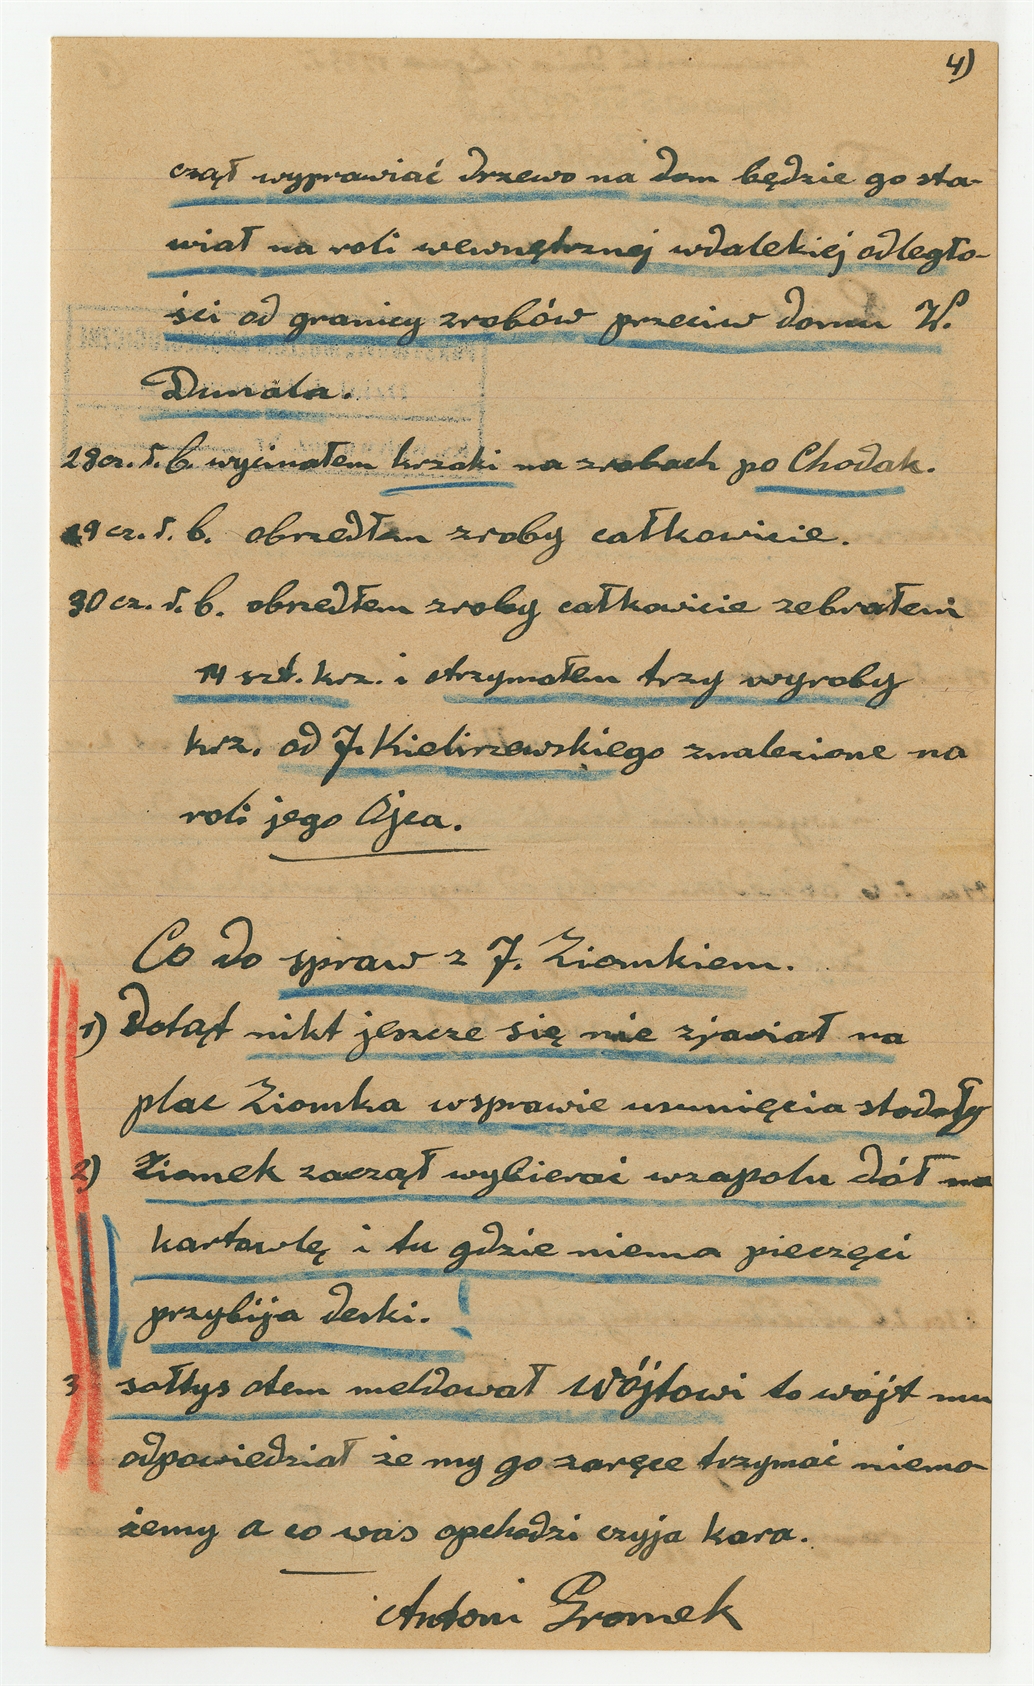 4)
czął wyprawiać drzewo na dom będzie go sta-
wiał na roli wewnętrznej wdalekiej odległo-
ści od granicy zrobów przeciw domu W.
Dunala.
28 cz. r. b. wycinałem krzaki na zrobach po Chodak.
29 cz. r. b. obszedłem zroby całkowicie.
30 cz. r. b. obszedłem zroby całkowicie zebrałem
14 szt. krz. i otrzymałem trzy wyroby
krz. od J. Kielirzewskiego znalezione na
roli jego Ojca.
Co do spraw z J. Ziomkiem.
1) Dotąt nikt jeszcze się nie zjawiał na
plac Ziomka wsprawie usunięcia stodoły
2) Ziomek zaczął wybierać wzapolu dół na
kartowlę i tu gdzie niema pieczęci
przybija deski.
3 sołtys otem meldował Wójtowi to wójt mu
odpowiedział że my go zaręce trzymać niemo-
żemy a co was opchodzi czyja kara.
Antoni Gromek